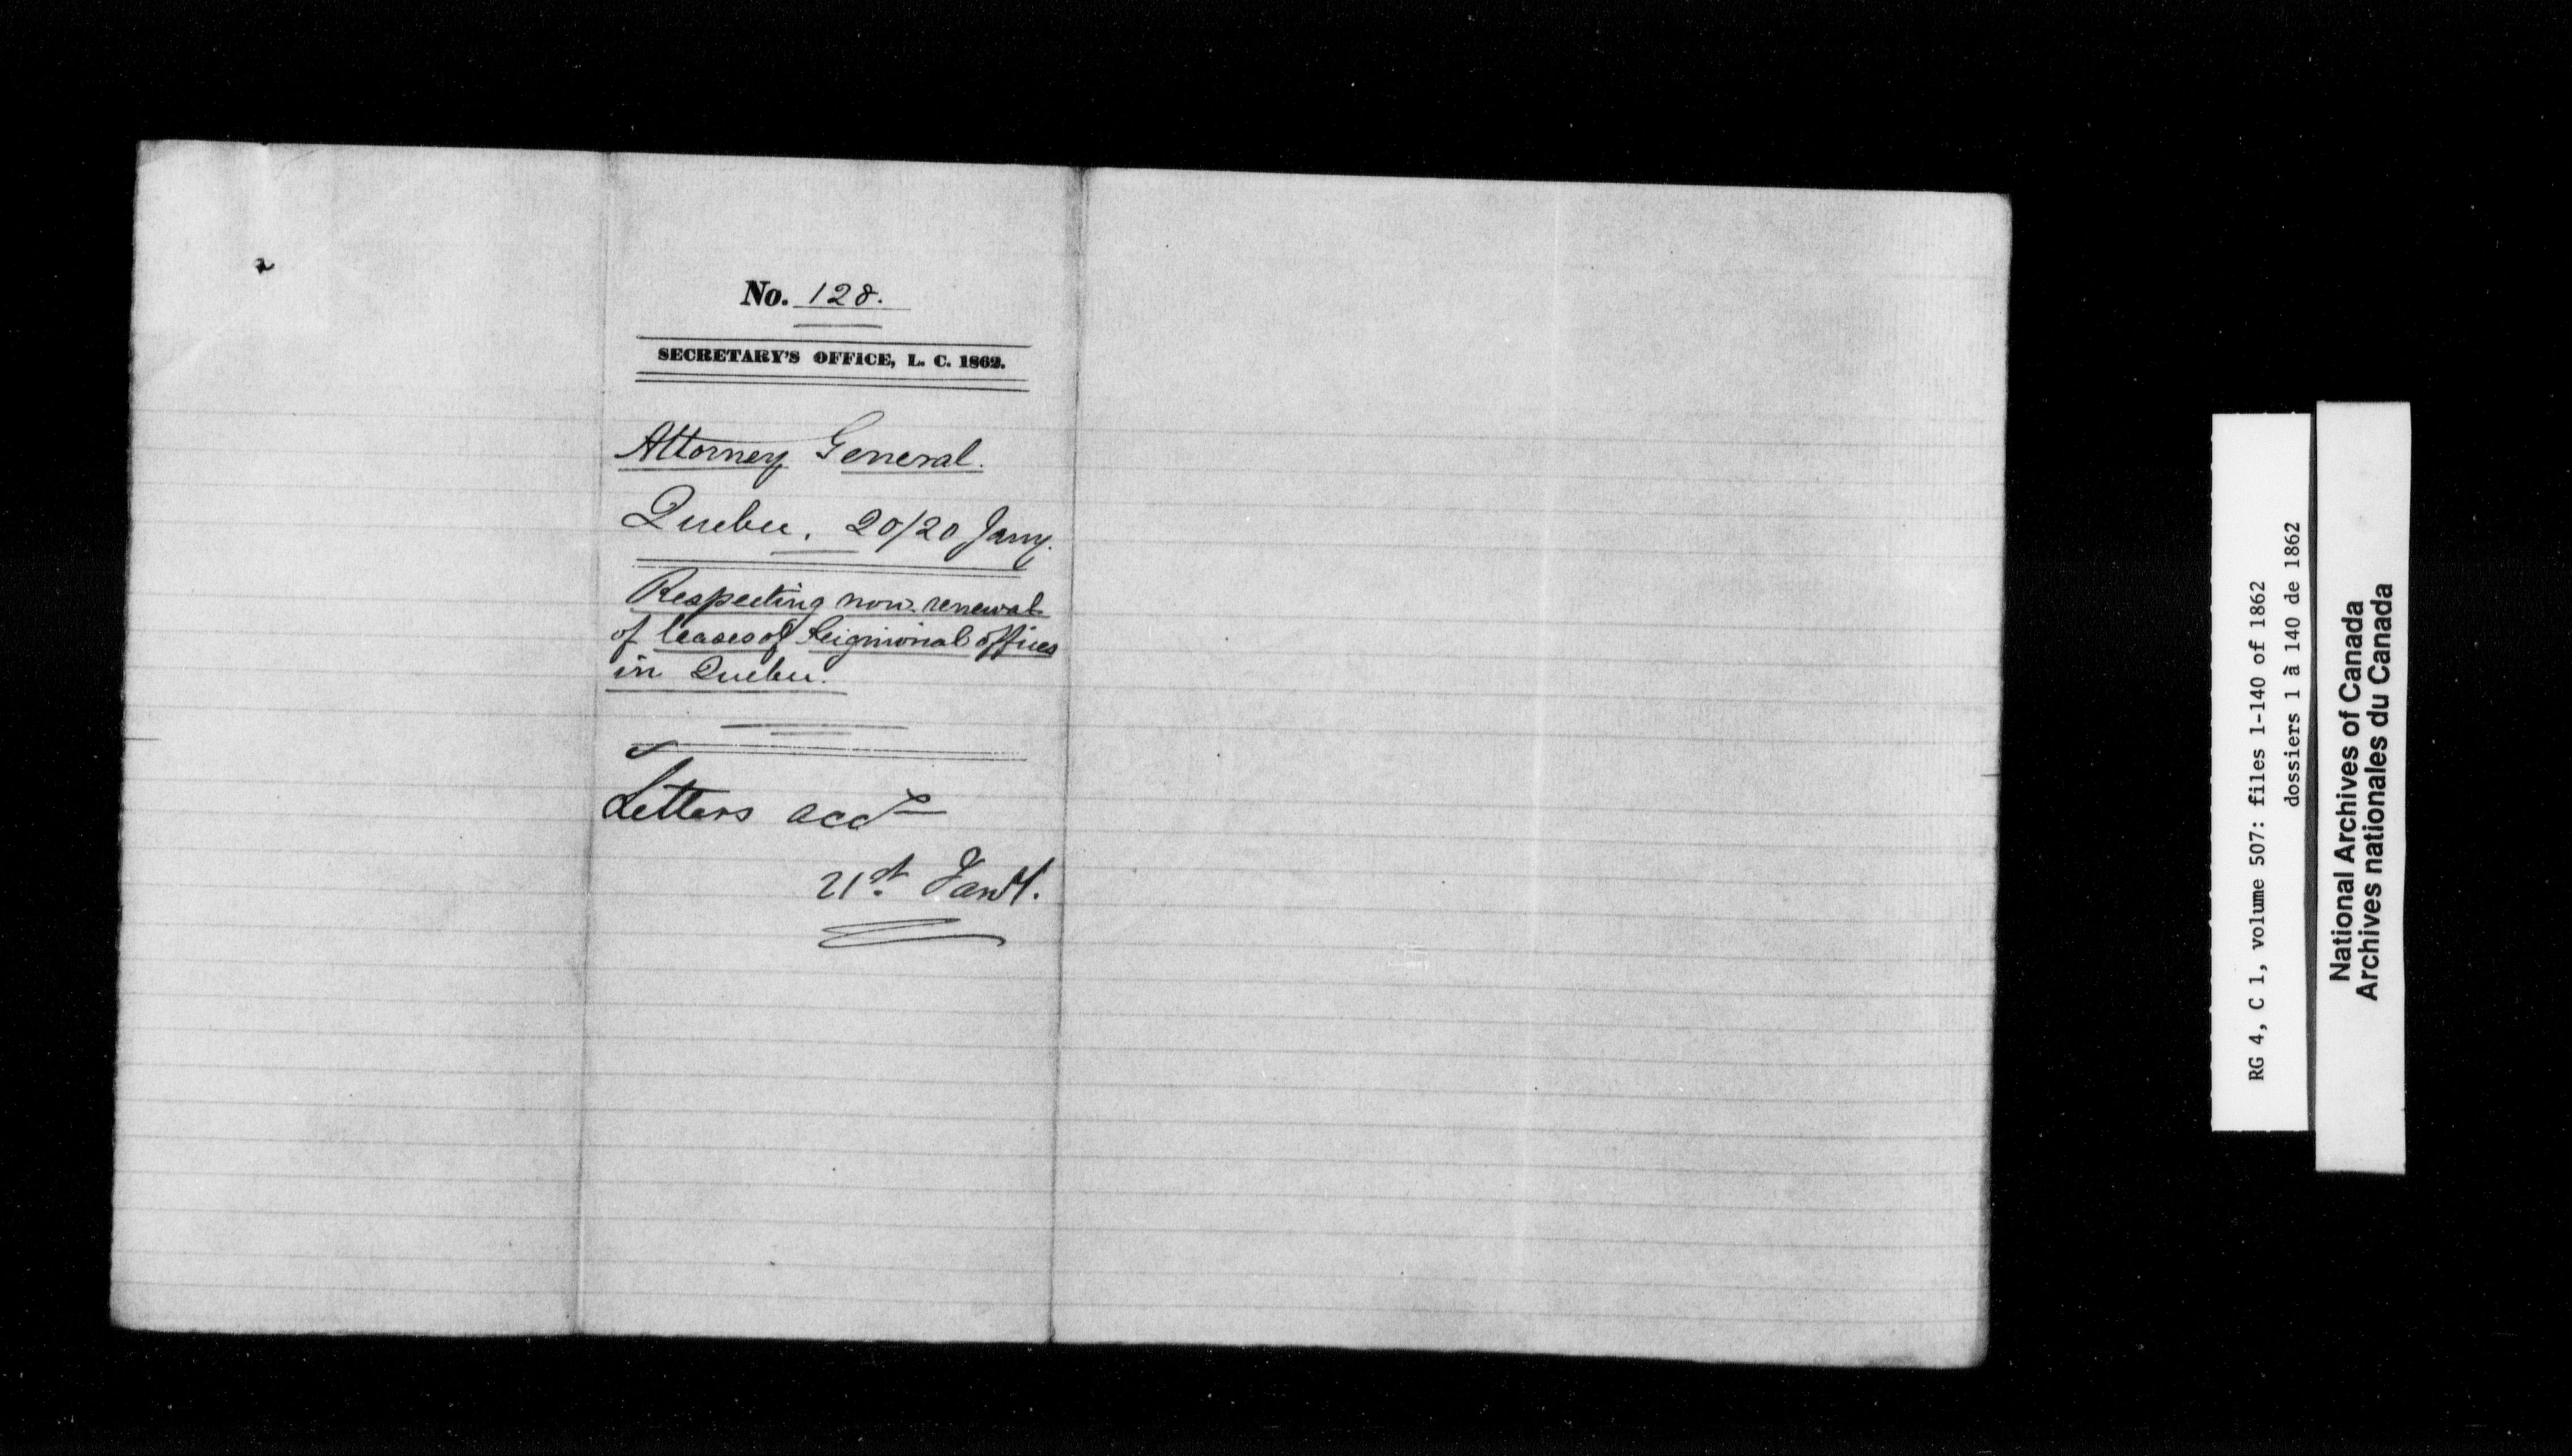 No. 128.
SECRETARY'S OFFICE, L. C. 1862.
Attorney General.
Quebec, 20/20 Jany.
Respecting non-renewal
of leases of Seignioral offices
in Quebec.
Letters accd
21st Jany.
RG 4, C 1, volume 507: files 1-140 of 1862
dossiers 1 à 140 de 1862
National Archives of Canada
Archives nationales du Canada